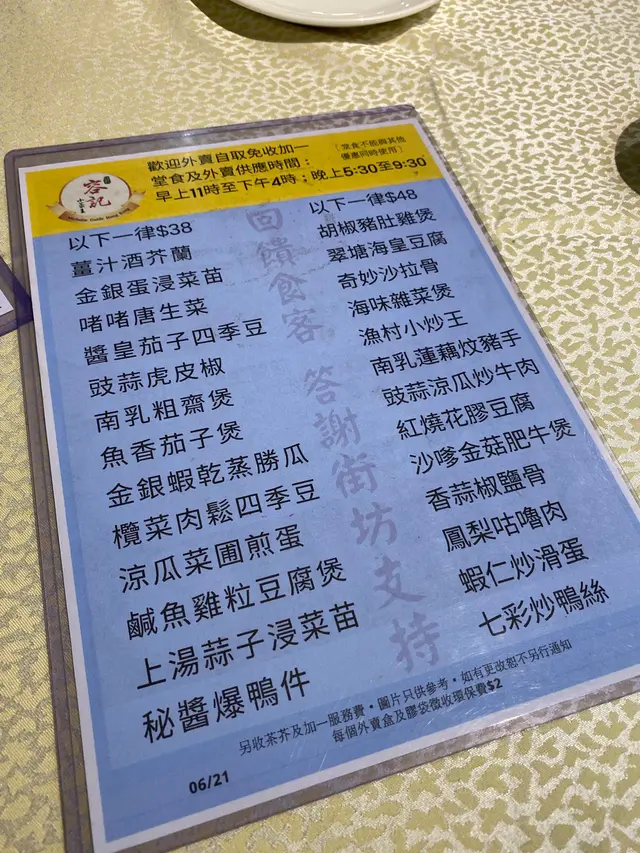 歡迎外賣自取免收加一
堂食及外賣供應時間：
早上11時至下午4時；晚上5:30至9:30
（堂食不能與其他
優惠同時使用）
容記
小菜王
以下一律$38
薑汁酒芥蘭
金銀蛋浸菜苗
啫啫唐生菜
醬皇茄子四季豆
豉蒜虎皮椒
南乳粗齋煲
魚香茄子煲
金銀蝦乾蒸勝瓜
欖菜肉鬆四季豆
涼瓜菜圃煎蛋
鹹魚雞粒豆腐煲
上湯蒜子浸菜苗
秘醬爆鴨件
回饋食客 答謝街坊支持
以下一律$48
胡椒豬肚雞煲
翠塘海皇豆腐
奇妙沙拉骨
海味雜菜煲
漁村小炒王
南乳蓮藕炆豬手
豉蒜涼瓜炒牛肉
紅燒花膠豆腐
沙嗲金菇肥牛煲
香蒜椒鹽骨
鳳梨咕嚕肉
蝦仁炒滑蛋
七彩炒鴨絲
另收茶芥及加一服務費・圖片只供參考・如有更改恕不另行通知
每個外賣盒及膠袋徵收環保費$2
06/21